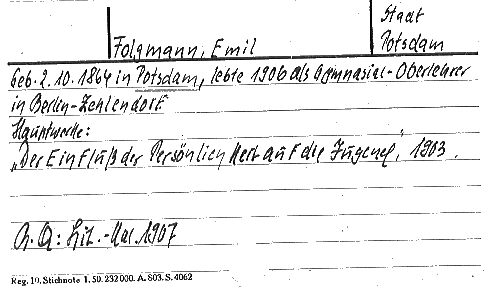 Stadt
Folgmann, Emil Potsdam
Geb. 2. 10. 1864 in Potsdam, lebte 1906 als Gymnasial-Oberlehrer
in Berlin-Zehlendorf
Hauptwerke:
„Der Einfluß der Persönlichkeit auf die Jugend“, 1903.
Lit.-Kal. 1907
Reg. 10. Stichnote 1. 50. 232000. A. 803. S. 4062